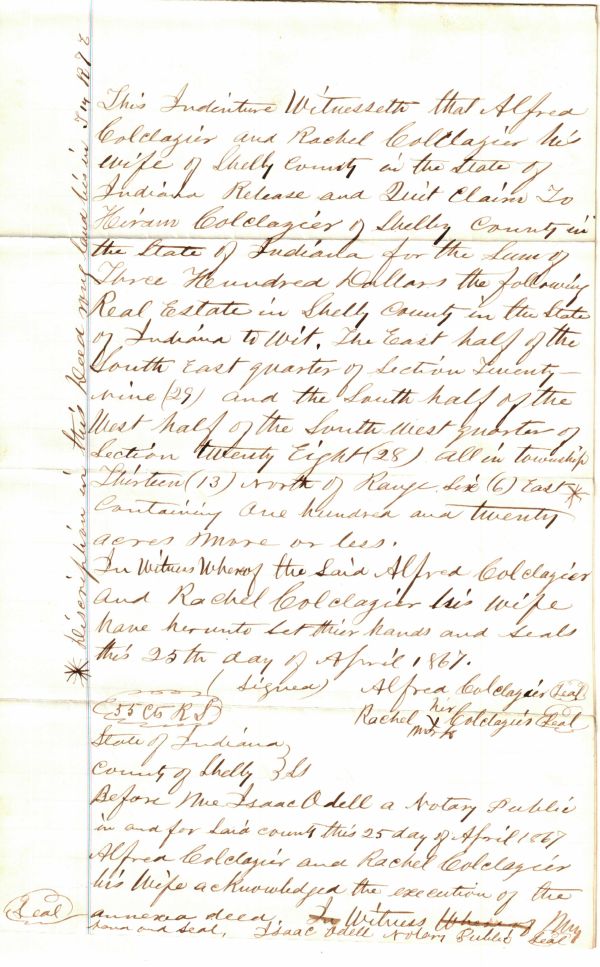 This Indenture Witnesseth that Alfred
Colclazier and Rachel Colclazier his
wife of Shelby County in the State of
Indiana Release and Quit Claim To
Hiram Colclazier of Shelby County in
the State of Indiana for the Sum of
Three Hundred Dollars the following
Real Estate in Shelby County in the State
of Indiana to Wit. The East half of the
South East quarter of Section Twenty-
nine (29) and the South half of the
West half of the South West quarter of
Section twenty Eight (28) all in township
Thirteen (13) North of Range Six (6) East *
Containing one hundred and twenty
acres more or less.
In Witness Whereof the Said Alfred Colclazier
and Rachel Colclazier his Wife
have herunto Set thier hands and Seals
this 25th day of April 1867.
(Signed) Alfred Colclazier Seal
her
Rachel X Colclazier Seal
mark
55 cts R S
State of Indiana
County of Shelby } SS
Before Me Isaac Odell a Notary Public
in and for Said county this 25 day of April 1867
Alfred Colclazier and Rachel Colclazier
his Wife acknowledged the execution of the
annexed deed. In Witness Whereof My
hand and Seal, Isaac Odell Notary Public Seal
Seal
* Discription in this Deed wrong land lies in